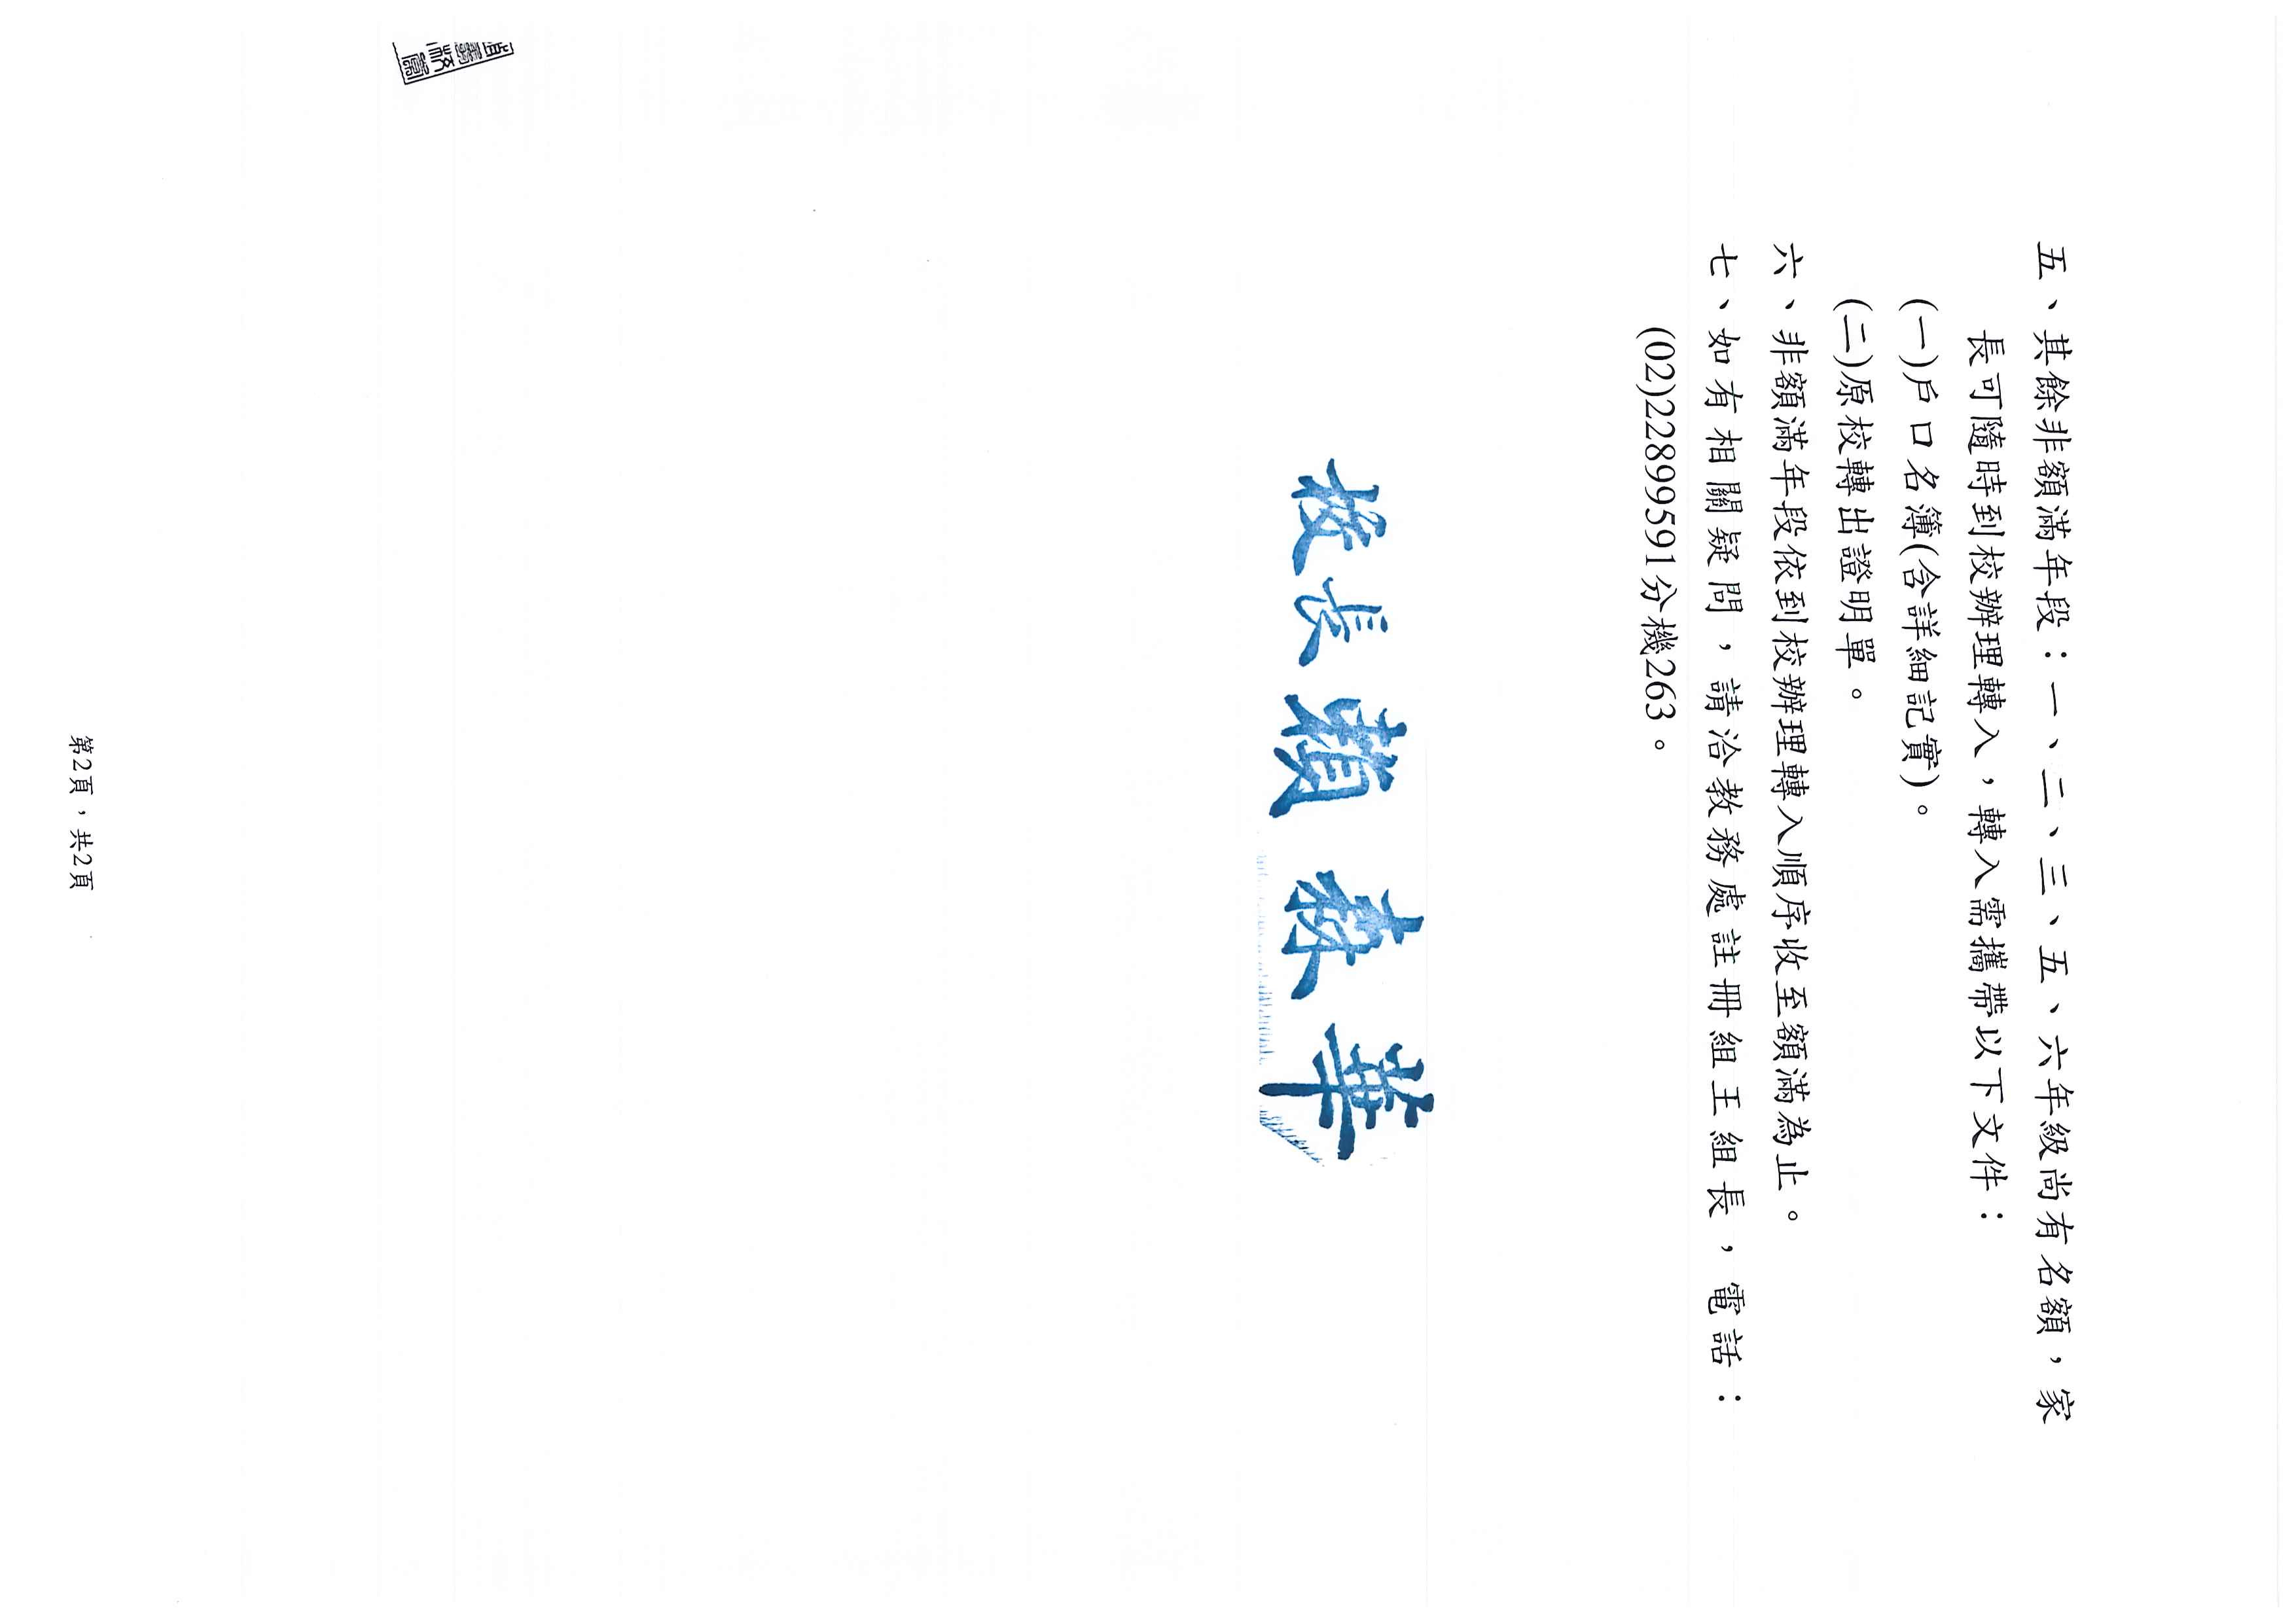 五、其餘非額滿年段：一、二、三、五、六年級尚有名額，家
長可隨時到校辦理轉入，轉入需攜帶以下文件：
(一)戶口名簿(含詳細記實)。
(二)原校轉出證明單。
六、非額滿年段依到校辦理轉入順序收至額滿為止。
七、如有相關疑問，請洽教務處註冊組王組長，電話：
(02)22899591分機263。
校長賴春華
第2頁，共2頁